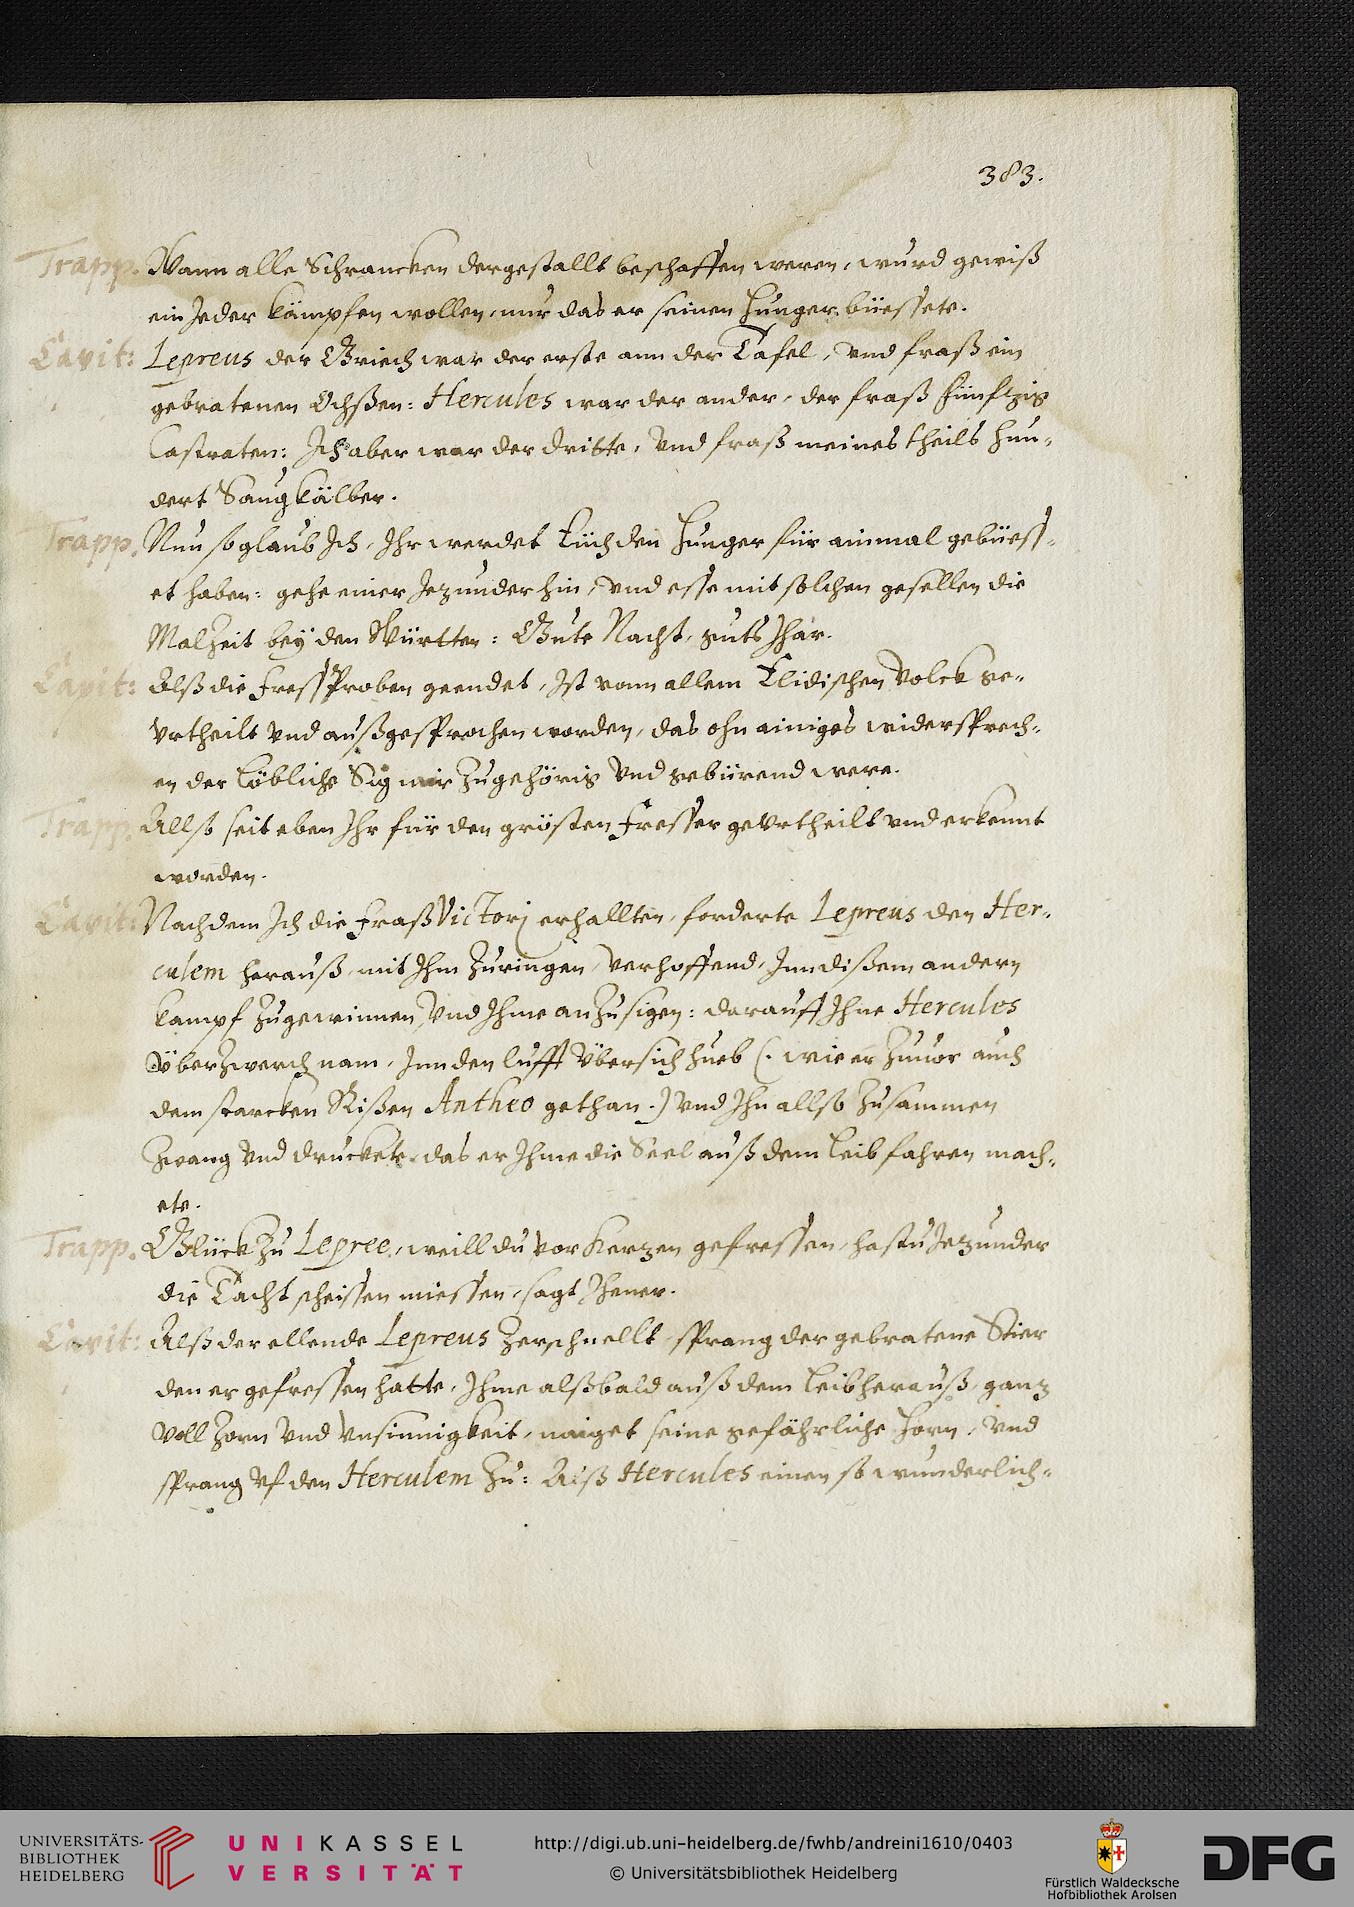 383.
Trapp. Wann alle Schrancken dergestallt beschaffen weren, wurd gewiß
ein Jeder kämpfen wollen, nur das er seinen Hunger büessete.
Capit: Lepreus der Griech war der erste ann der Tafel, vnd fraß ein
gebratenen Ochßen: Hercules war der ander, der fraß fünfzig
Castraten: Ich aber war der dritte, vnd fraß meines theils hun-
dert Saugkälber.
Trapp. Nun so glaub Ich, Ihr werdet Eüch den Hunger für ainmal gebüess-
et haben: gehe einer Jezunder hin, vnd esse mit solchen gesellen die
Malzeit bey den Württen: Gute Nacht, guts Jhar.
Capit: Alß die FressProben geendet, Ist vonn allem Elidischen Volck ge-
vrtheilt vnd außgesprochen worden, das ohn ainiges widersprech-
en der löbliche Sig mir zugehörig vnd gebürend were.
Trapp. Allso seit eben Ihr für den grösten Fresser gevrtheilt vnd erkennt
worden.
Capit: Nachdem Ich die Fraß Victorj erhallten, forderte Lepreus den Her-
culem herauß, mit Ihm zuringen, verhoffend, Inn dißem andern
kampf zugewinnen, vnd Ihme anzusigen: darauff Ihne Hercules
überzwerch nam, Inn den lufft übersich hueb (. wie er zuuor auch
dem starcken Rißen Antheo gethan .) vnd Ihn allso zusammen
zwang vnd druckete, das er Ihme die Seel auß dem leib fahren mach-
ete.
Trapp. Glück zu Lepree, weill du vor Kerzen gefressen, hastu Jezunder
die Tacht scheissen miessen, sagt Jhener.
Capit: Alß der ellende Lepreus zerschnellt, sprang der gebratene Stier
den er gefressen hatte, Ihme alßbald auß dem leib herauß, ganz
voll zorn vnd vnsinnigkeit, naiget seine gefährliche horn, vnd
sprang vf den Herculem zu: Alß Hercules einen so wunderlich-
UNIVERSITÄTS-
BIBLIOTHEK
HEIDELBERG
UNIKASSEL
VERSITÄT
http://digi.ub.uni-heidelberg.de/fwhb/andreini1610/0403
© Universitätsbibliothek Heidelberg
Fürstlich Waldecksche
Hofbibliothek Arolsen
DFG